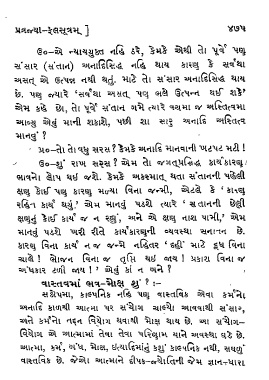 પ્રવ્રજ્યા-ફલસૂત્રમ્ ]
૪૭૫
ઉ૦-એ ન્યાયયુક્ત નહિ ઠરે, કેમકે એથી તો પૂર્વે પણ
સંસાર (સંતાન) અનાદિસિદ્ધ નહિ થાય કારણ કે સર્વથા
અસત્ એ ઉત્પન્ન નથી થતું. માટે તો સંસાર અનાદિસિદ્ધ થાય
છે. પણ જ્યારે 'સર્વથા અસત્ પણ ભલે ઉત્પન્ન થઈ શકે'
એમ કહો છો, તો પૂર્વે સંતાન ગમે ત્યારે વચમાં જ અસ્તિત્વમાં
આવ્યું એવું માની શકાશે, પછી શા સારુ અનાદિ અસ્તિત્વ
માનવું ?
પ્ર૦-તો તો વધુ સરસ ! કેમકે અનાદિ માનવાની ખટપટ મટી !
ઉ૦-શું રાખ સરસ ? એમ તો જગત્પ્રસિદ્ધ કાર્યકારણ-
ભાવનો લોપ થઈ જશે. કેમકે અકસ્માત્ થતા સંતાનની પહેલી
ક્ષણ કોઈ પણ કારણ મળ્યા વિના જન્મી, એટલે કે 'કારણ
રહિત કાર્ય થયું.' એમ માનવું પડશે ત્યારે 'સંતાનની છેલ્લી
ક્ષણનું કોઈ કાર્ય જ ન રહ્યું', અને એ ક્ષણ નાશ પામી,' એમ
માનવું પડશે ખરી રીતે કાર્યકારણની વ્યવસ્થા સનાતન છે.
કારણ વિના કાર્ય ન જ જન્મે નહિતર 'દહીં' માટે દૂધ વિના
ચાલે ! ભોજન વિના જ તૃપ્તિ થઈ જાય ! પ્રકાશ વિના જ
અંધકાર ટળી જાય !' એવું કાં ન બને ?
વાસ્તવમાં ભવ-મોક્ષ શું ? :-
સંક્ષેપમાં, કાલ્પનિક નહિ પણ વાસ્તવિક એવા કર્મનો
અનાદિ કાળથી આત્મા પર સંયોગ ચાલ્યો આવવાથી સંસાર,
અને કર્મનો તદ્દન વિયોગ થવાથી મોક્ષ થાય છે. આ સંયોગ-
વિયોગ એ આત્મામાં તેવા તેવા પરિણામ યાને અવસ્થા ઘડે છે.
આત્મા, કર્મ, બંધ, મોક્ષ, ઇત્યાદિમાંનું કશું કાલ્પનિક નથી, સઘળું
વાસ્તવિક છે. જેઓ આત્માને દીપક-જ્યોતિની જેમ જ્ઞાન-ધારા